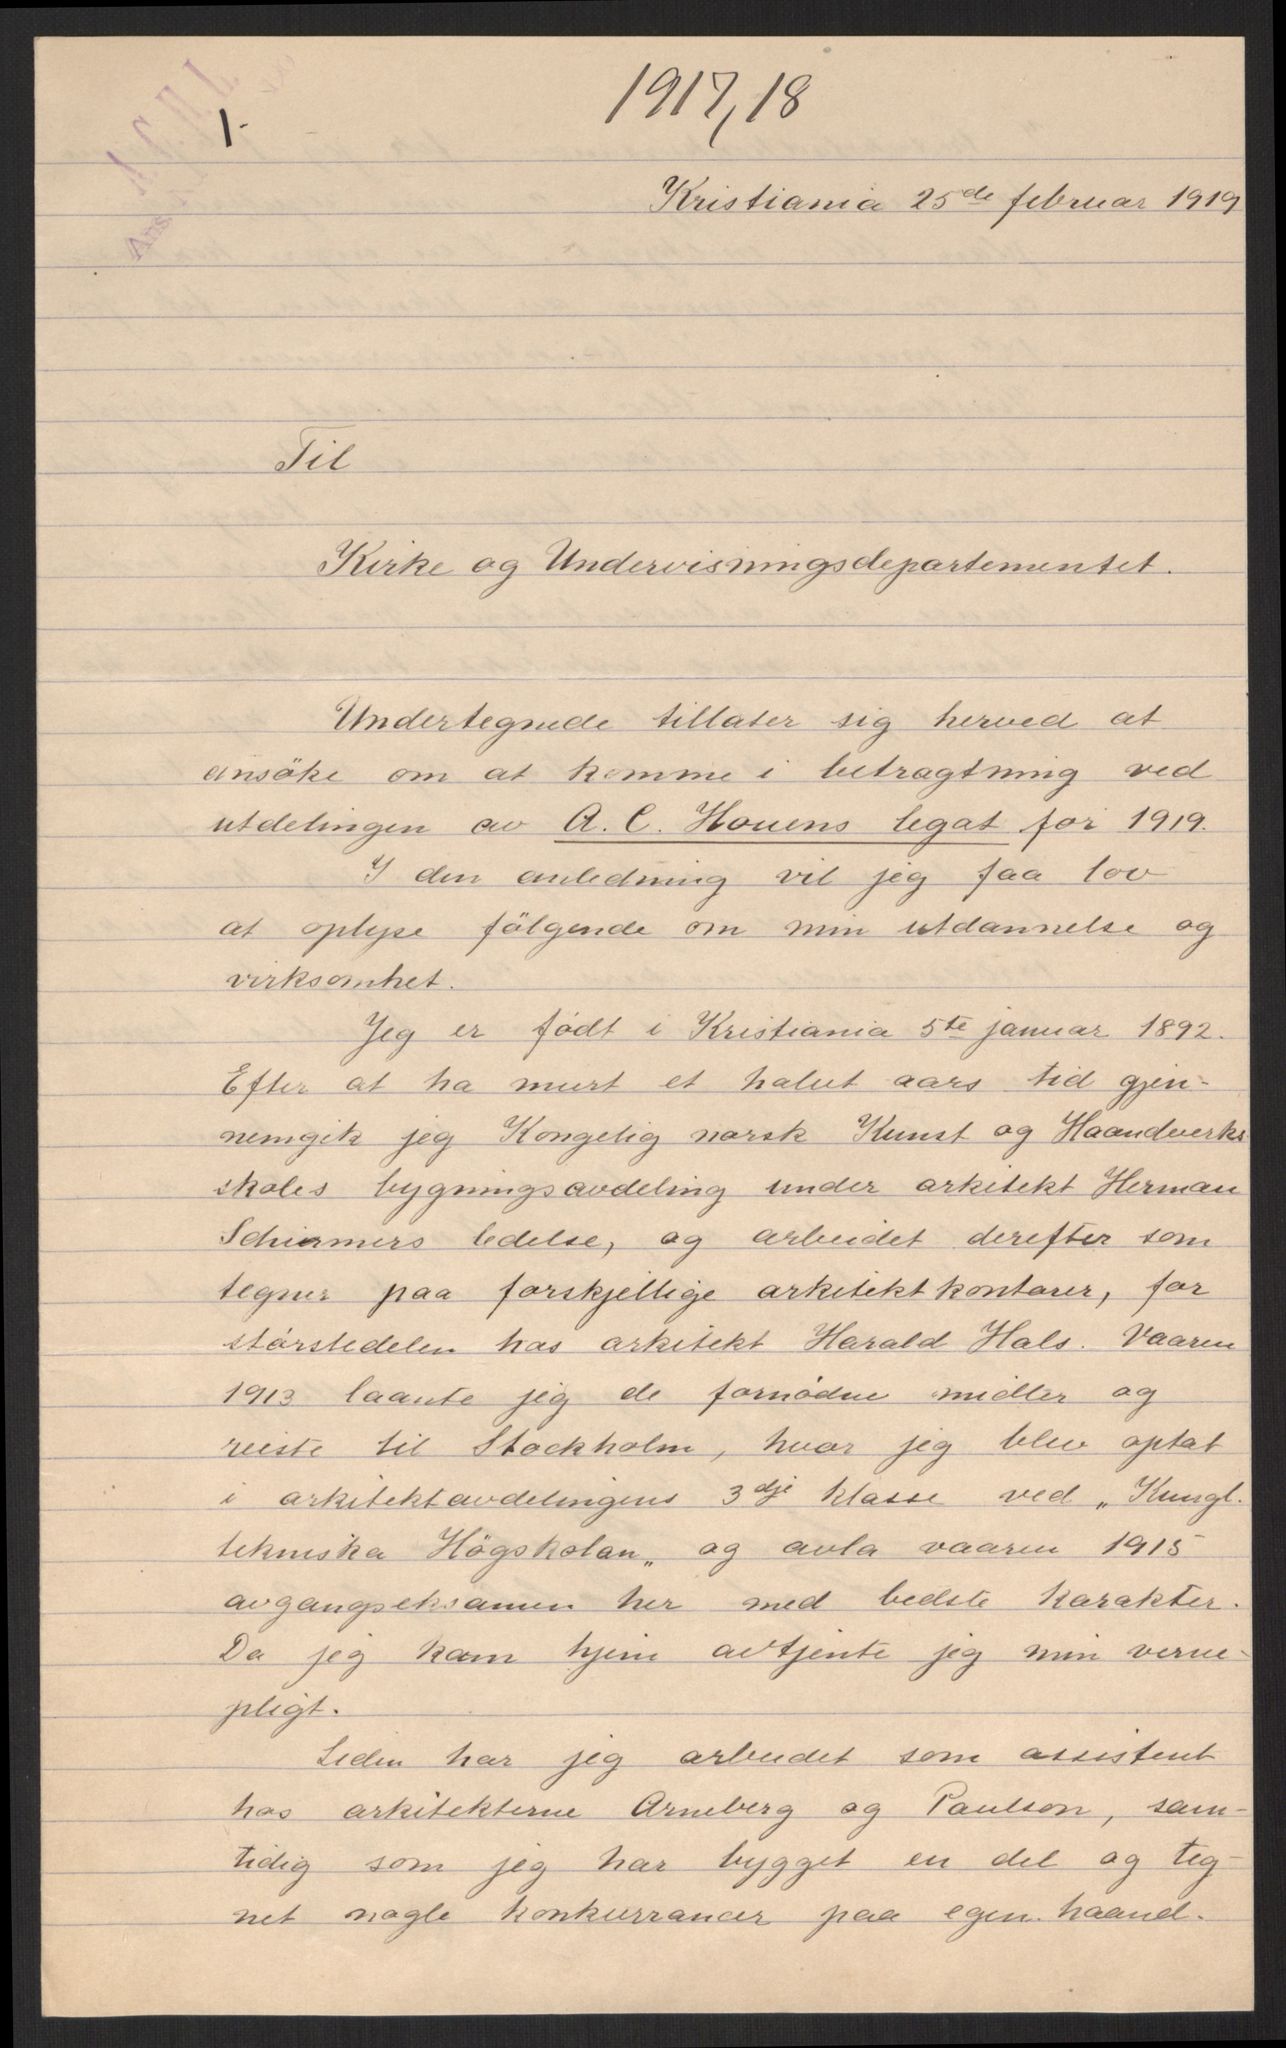 1917, 18
1-
Kristiania 25de februar 1919
Til
Kirke og Undervisningsdepartementet.
Undertegnede tillater sig herved at
ansöke om at komme i betragtning ved
utdelingen av A. C. Houens legat for 1919.
I den anledning vil jeg faa lov
at oplyse fölgende om min utdannelse og
virksomhet.
Jeg er födt i Kristiania 5te januar 1892.
Efter at ha murt et halvt aars tid gjen-
nemgik jeg Kongelig norsk Kunst og Haandverks
skoles bygningsavdeling under arkitekt Herman
Schirmers ledelse, og arbeidet derefter som
tegner paa forskjellige arkitektkontorer, for
störstedelen hos arkitekt Harald Hals. Vaaren
1913 laante jeg de fornödne midler og
reiste til Stockholm, hvor jeg blev optat
i arkitektavdelingens 3dje klasse ved „Kungl.
tekniska Högskolan„ og avla vaaren 1915
avgangseksamen her med bedste karakter.
Da jeg kom hjem avtjente jeg min verne-
pligt.
Siden har jeg arbeidet som assistent
hos arkitekterne Arneberg og Poulson, sam-
tidig som jeg har bygget en del og teg-
net nogle konkurrancer paa egen haand.